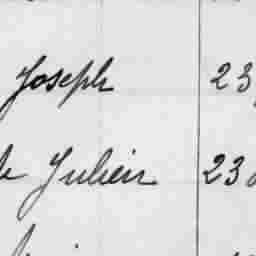 Joseph 23
Julien 23